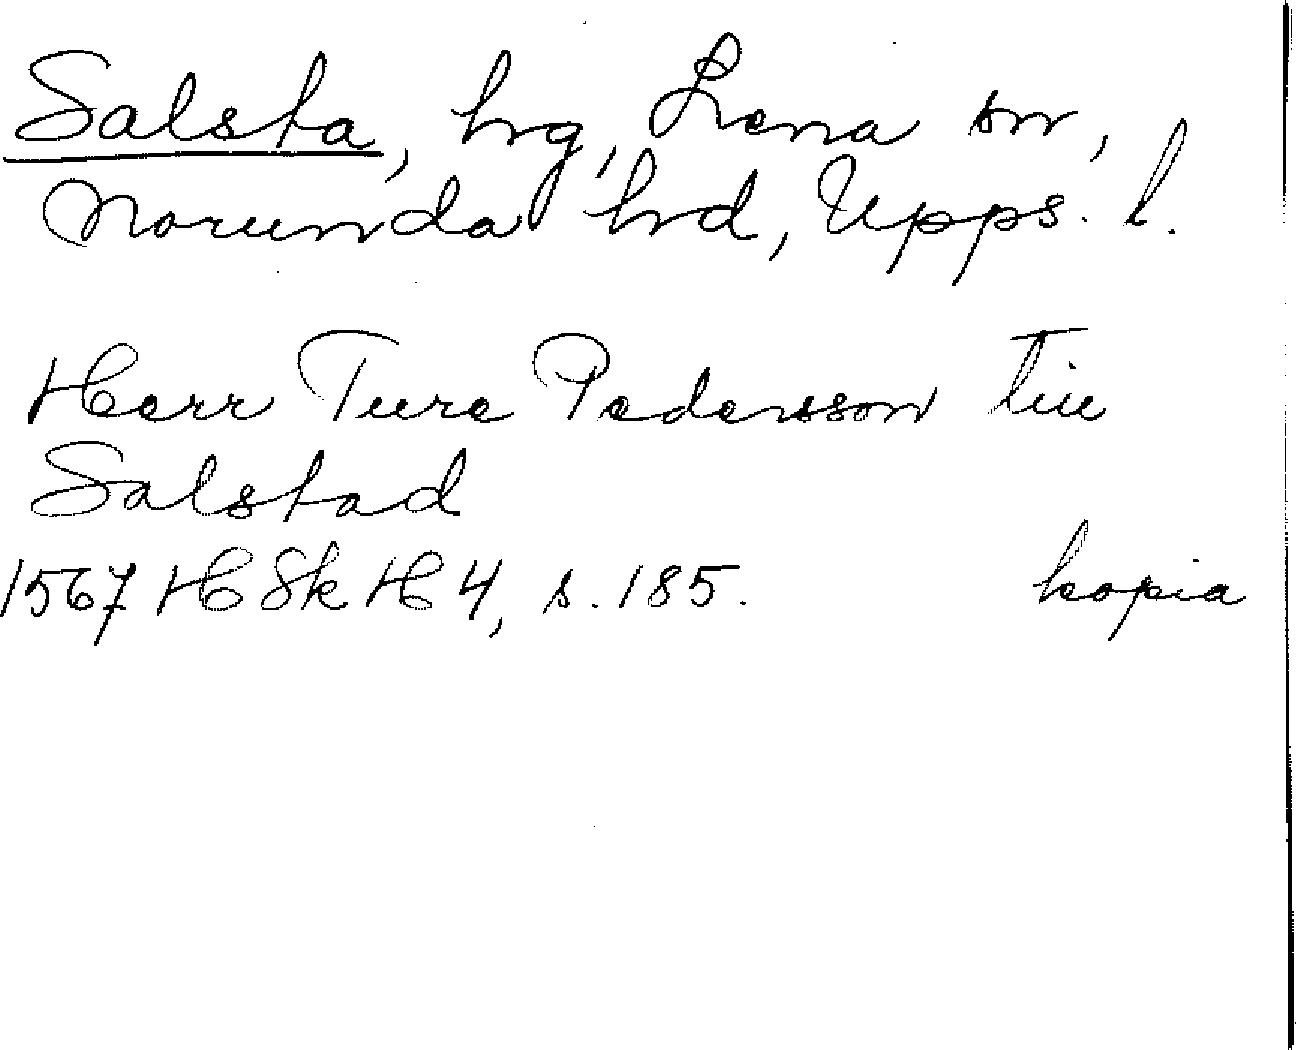 Salsta, hrg, Lena sn,
Norunda hrd, Upps. l.
Herr Ture Pedersson tiil
Salstad
1567 HSk H 4, s. 185. kopia